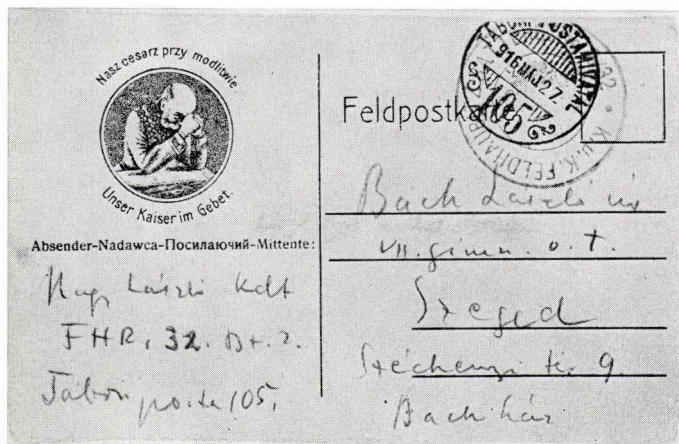 Nasz cesarz przy modlitwie
Unser Kaiser im Gebet.
Absender-Nadawca-Посилаючий-Mittente:
Nagy László Kdt
FHR. 32. Bt. 2.
Tábori posta 105.
Feldpostkarte
TÁBORI POSTAHIVATAL
916 MÁJ 27.
105
K.u.K. FELDHAUB
32
Bach László úr
VII. gimn. o. t.
Szeged
Széchenyi tér 9.
Bach ház